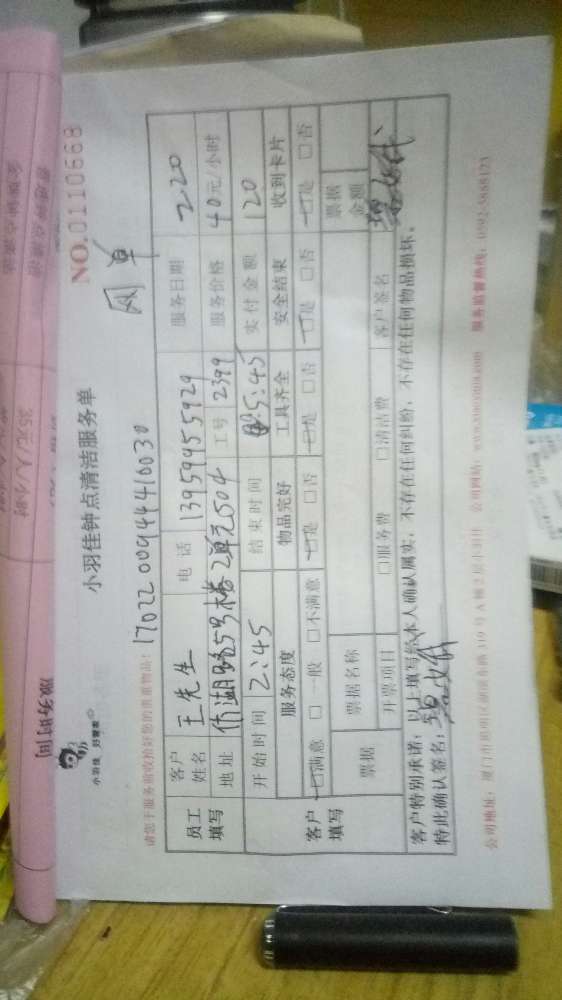 小羽佳 好管家
小羽佳钟点清洁服务单
NO.0110668
网单
请您于服务前收拾好您的贵重物品!
17022009444410030
员工填写 客户姓名 王先生 电话 13959455929 服务日期 2.20
地址 仿湖路5号楼2单元504 工号 2399 服务价格 40元/小时
开始时间 2:45 结束时间 5:45 实付金额 120
客户填写 服务态度 物品完好 工具齐全 安全结束 收到卡片
□满意 □一般 □不满意 □是 □否 □是 □否 □是 □否 □是 □否
票据 票据名称 票据金额
开票项目 □服务费 □清洁费 客户签名
客户特别承诺:以上填写经本人确认属实,不存在任何纠纷,不存在任何物品损坏。
特此确认签名:
公司地址:厦门市思明区湖滨东路319号A幢2层小羽佳 公司网站: 服务监督热线:0592-5668123
35元/人/小时
服务时间